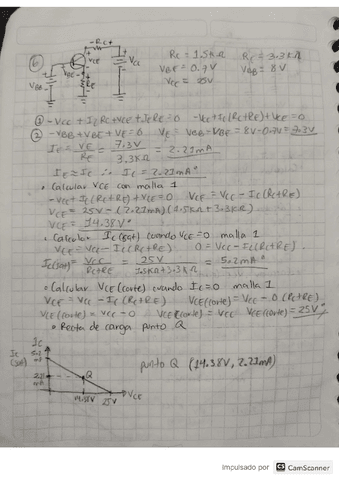 6
-Rc+
VCE
Vcc
VBE
RE
VBB
Rc = 1.5KΩ RE = 3.3KΩ
VBE = 0.7V VBB = 8V
Vcc = 25V
① -Vcc + IcRc + VCE + IcRE = 0 -Vcc + Ic(Rc+RE) + VCE = 0
② -VBB + VBE + VE = 0 VE = VBB - VBE = 8V - 0.7V = 7.3V
IE = VE/RE = 7.3V/3.3KΩ = 2.21mA
IE ≈ Ic ∴ Ic = 2.21mA
• Calcular VCE con malla 1
-Vcc + Ic(Rc+RE) + VCE = 0 VCE = Vcc - Ic(Rc+RE)
VCE = 25V - (2.21mA)(1.5KΩ + 3.3KΩ)
VCE = 14.38V
• Calcular Ic(sat) cuando VCE = 0 malla 1
VCE = Vcc - Ic(Rc+RE) 0 = Vcc - Ic(Rc+RE)
Ic(sat) = Vcc/Rc+RE = 25V/1.5KΩ+3.3KΩ = 5.2mA
• Calcular VCE(corte) cuando Ic = 0 malla 1
VCE = Vcc - Ic(Rc+RE) VCE(corte) = Vcc - 0(Rc+RE)
VCE(corte) = Vcc - 0 VCE(corte) = Vcc VCE(corte) = 25V
• Recta de carga punto Q
Ic
Ic (sat)
5.2 mA
2.21 mA
Q
14.38V 25V
VCE
punto Q (14.38V, 2.21mA)
Impulsado por CS CamScanner